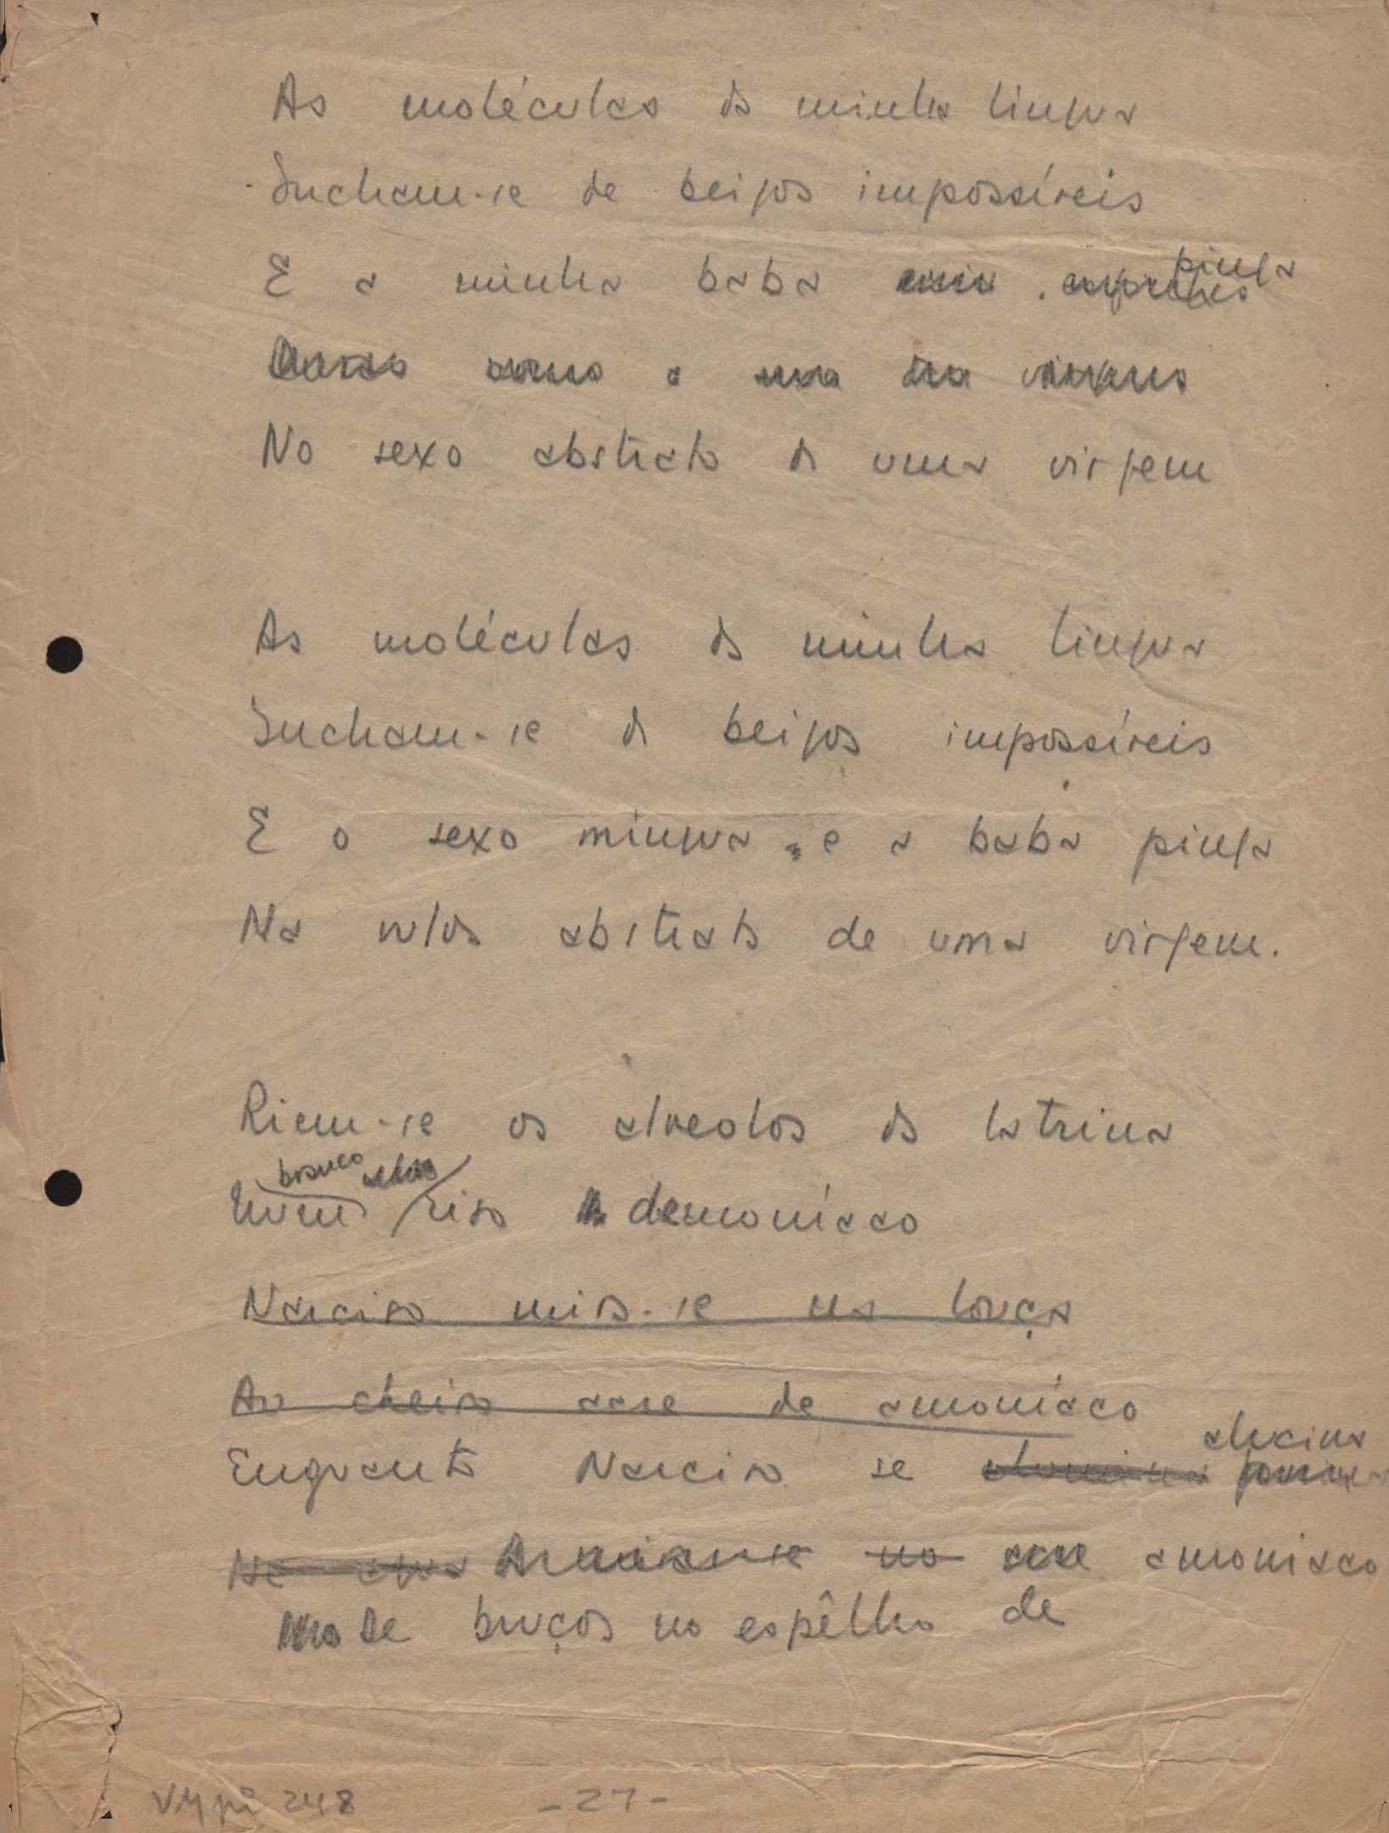 As moléculas da minha língua
Incham-se de beijos impossíveis
E a minha baba pinga
No sexo abstrato de uma virgem
As moléculas da minha língua
Incham-se de beijos impossíveis
E o sexo míngua e a baba pinga
Na vulva abstrata de uma virgem.
Riem-se os alveolos da latrina
branco
Num riso demoníaco
Narciso mira-se na louça
Ao cheiro acre de amoníaco
alucina
Enquanto Narciso se
amoniaco
De bruços no espêlho de
VMpi 248 -27-